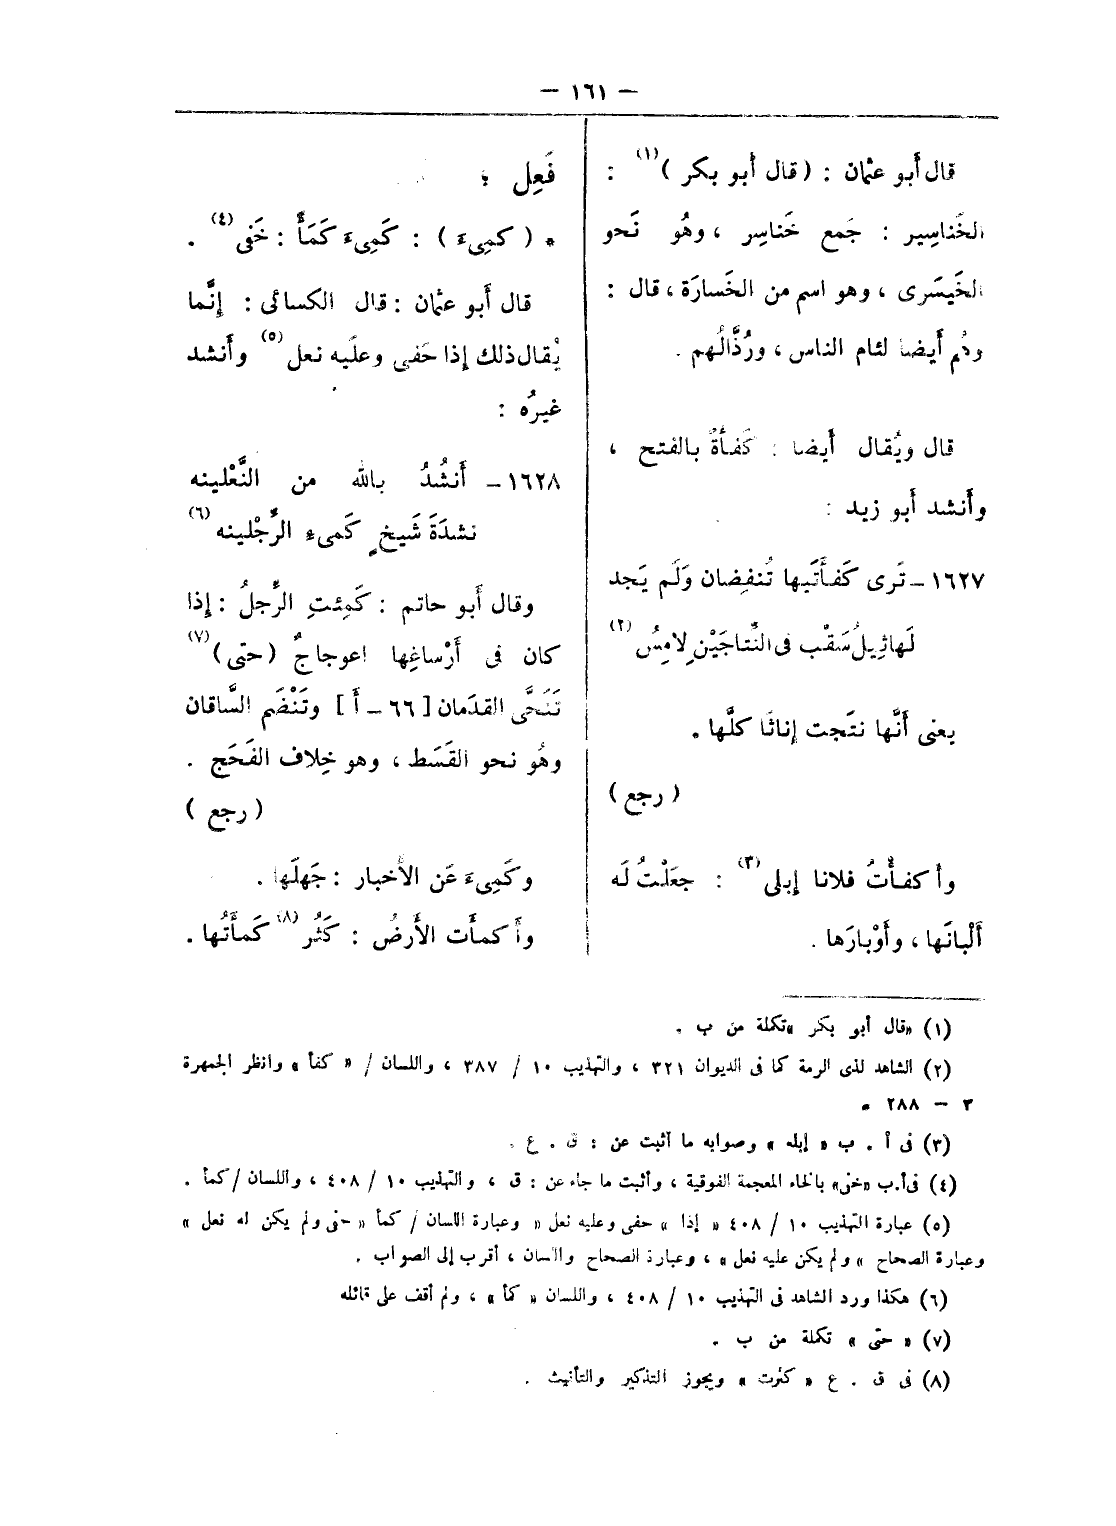 — ١٦١ —
قال أَبو عثمان : (قال أَبو بكر )(١) :
الخَناسِير : جَمع خَناسِر ، وهُو نَحو
الخَيسَرى ، وهو اسم من الخَسارَة ، قال :
وهُم أَيضا لئام الناس ، ورُذَّالُهم .
قال ويُقال أَيضا : كَفأَةٌ بالفتح ،
وأَنشد أَبو زيد :
١٦٢٧ – تَرى كَفأَتَيها تُنفِضان وَلَم يَجد
لَهاثِيلُ سَقْب فى النِّتاجَيْنِ لامِسُ (٢)
يعنى أَنَّها نتَجت إناثا كلَّها .
( رجع )
وأَكفأْتُ فلانا إبلى(٣) : جعَلْتُ لَه
أَلْبانَها ، وأَوْبارَها .
فَعِل :
* ( كمِىءَ ) : كَمِىءَ كَمَأً : حَفى(٤) .
قال أَبو عثمان : قال الكسائى : إنَّما
يُقال ذلك إذا حَفى وعلَيه نعل(٥) وأَنشد
غيرُه :
١٦٢٨ – أَنشُدُ بالله من النَّعْلينه
نشدَةَ شَيخٍ كَمىءِ الرِّجْلينه (٦)
وقال أَبو حاتم : كَمِئتِ الرِّجلُ : إذا
كان فى أَرْساغِها اعوجاجٌ (حتى)(٧)
تَنَحَّى القدَمان [٦٦ – أَ] وتَنْضَم السَّاقان
وهُو نحو القَسَط ، وهو خِلاف الفَحَج .
( رجع )
وكَمِىءَ عَن الأَخبار : جَهلَها .
وأَكمأَت الأَرضُ : كَثُر(٨) كَمأَتُها .
(١) «قال أبو بكر» تكملة من ب .
(٢) الشاهد لذى الرمة كما فى الديوان ٣٢١ ، والتهذيب ١٠ / ٣٨٧ ، واللسان / « كفأ » وانظر الجمهرة
٣ – ٢٨٨ .
(٣) فى أ . ب « إبله » وصوابه ما أثبت عن : ق . ع .
(٤) فى أ.ب «خفى» بالخاء المعجمة الفوقية ، وأثبت ما جاء عن : ق ، والتهذيب ١٠ / ٤٠٨ ، واللسان /كمأ .
(٥) عبارة التهذيب ١٠ / ٤٠٨ « إذا » حفى وعليه نعل « وعبارة اللسان / كمأ « حفى ولم يكن له نعل »
وعبارة الصحاح » ولم يكن عليه نعل » ، وعبارة الصحاح واللسان ، أقرب إلى الصواب .
(٦) هكذا ورد الشاهد فى التهذيب ١٠ / ٤٠٨ ، واللسان « كمأ » ، ولم أقف على قائله
(٧) « حتى » تكملة من ب .
(٨) فى ق . ع « كثرت » ويجوز التذكير والتأنيث .